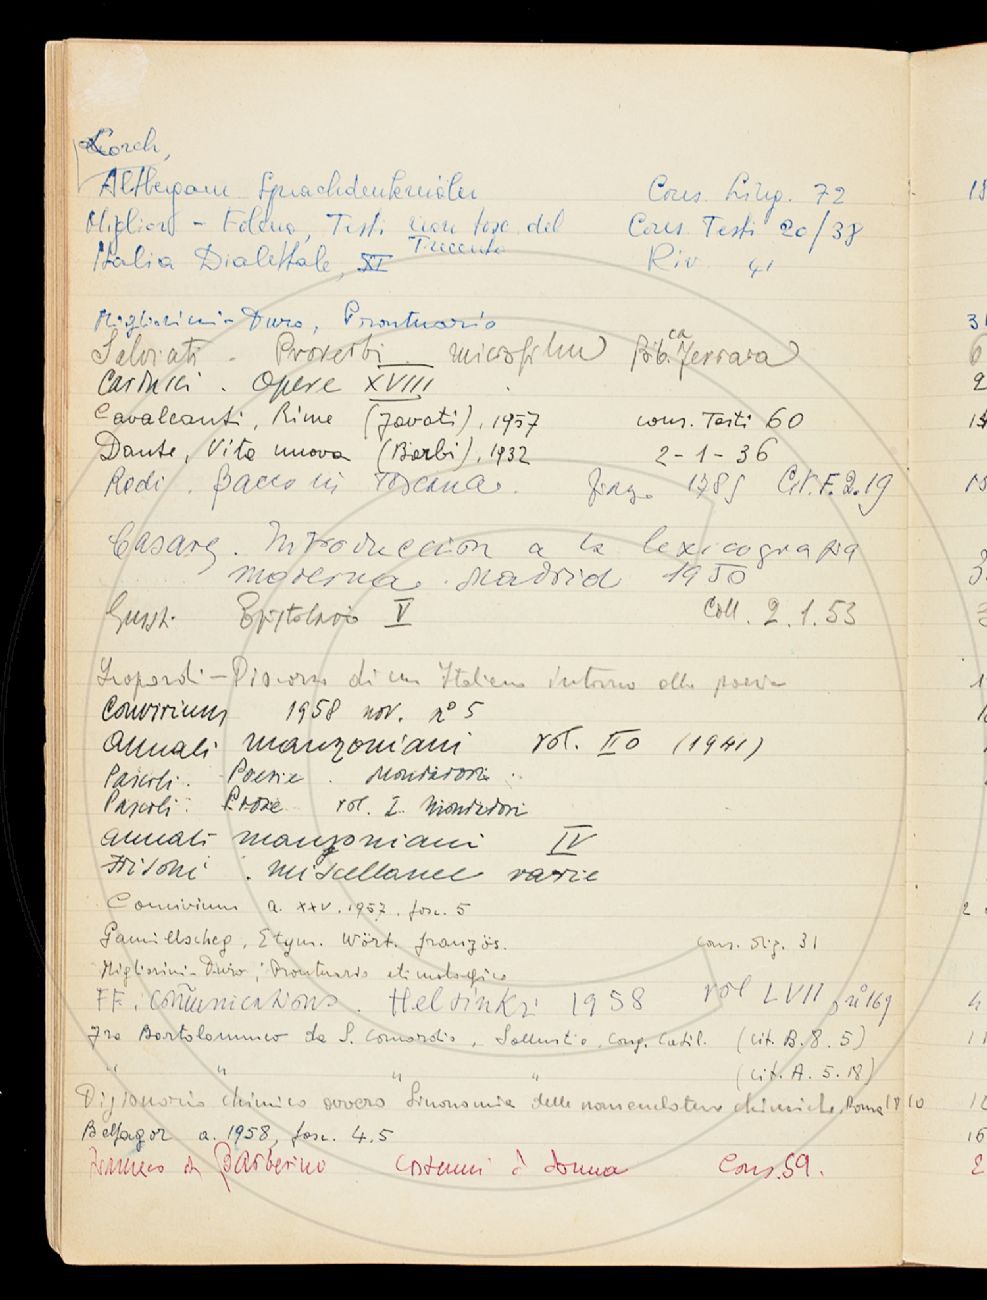 Lorck,
Altbergam. Sprachdenkmäler Cons. Ling. 72
Migliorini - Folena, Testi non tosc. del Trecento Cons. Testi 20/38
Italia Dialettale, XI Riv. 41
Migliorini - Duro, Prontuario
Salviati. Proverbi. microfilm Bib.ca Ferrara
Carducci. Opere XVIII
Cavalcanti, Rime (Favati), 1957 cons. Testi 60
Dante, Vita nuova (Barbi), 1932 2-1-36
Redi. Bacco in Toscana. Cit. F. 2. 19
Casares. Introduccion a la lexicografia
moderna. Madrid 1950
Giusti. Epistolario V Coll. 2.1.53
Leopardi - Discorso di un Italiano intorno alla poesia
Convivium 1958 nov. n° 5
Annali manzoniani vol. IIo (1941)
Pascoli. Poesie. Mondadori.
Pascoli. Prose vol. I Mondadori
Annali manzoniani IV
miscellanee varie
Convivium a. XXV. 1957. fasc. 5
Gamillscheg, Etym. Wört. französ. cons. Diz. 31
Migliorini-Duro, Prontuario etimologico
FF. Communications. Helsinki 1958 vol LVII, n° 169
Fra Bartolommeo da S. Concordio, Sallustio, Cong. Catil. (cit. B. 8. 5)
" " " " (cit. A. 5. 18)
Dizionario chimico ovvero Sinonomia della nomenclatura chimiche, Roma 1810
Belfagor a. 1958, fasc. 4.5
Francesco da Barberino Costumi di donna Cons. 59.